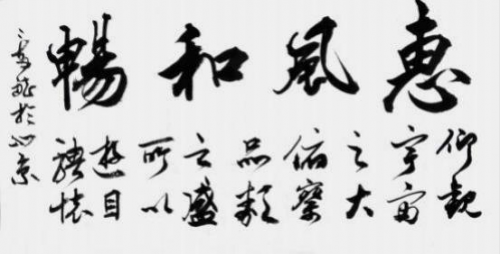 惠風和暢
仰觀
宇宙
之大
俯察
品類
之盛
所以
遊目
騁懷
於北京